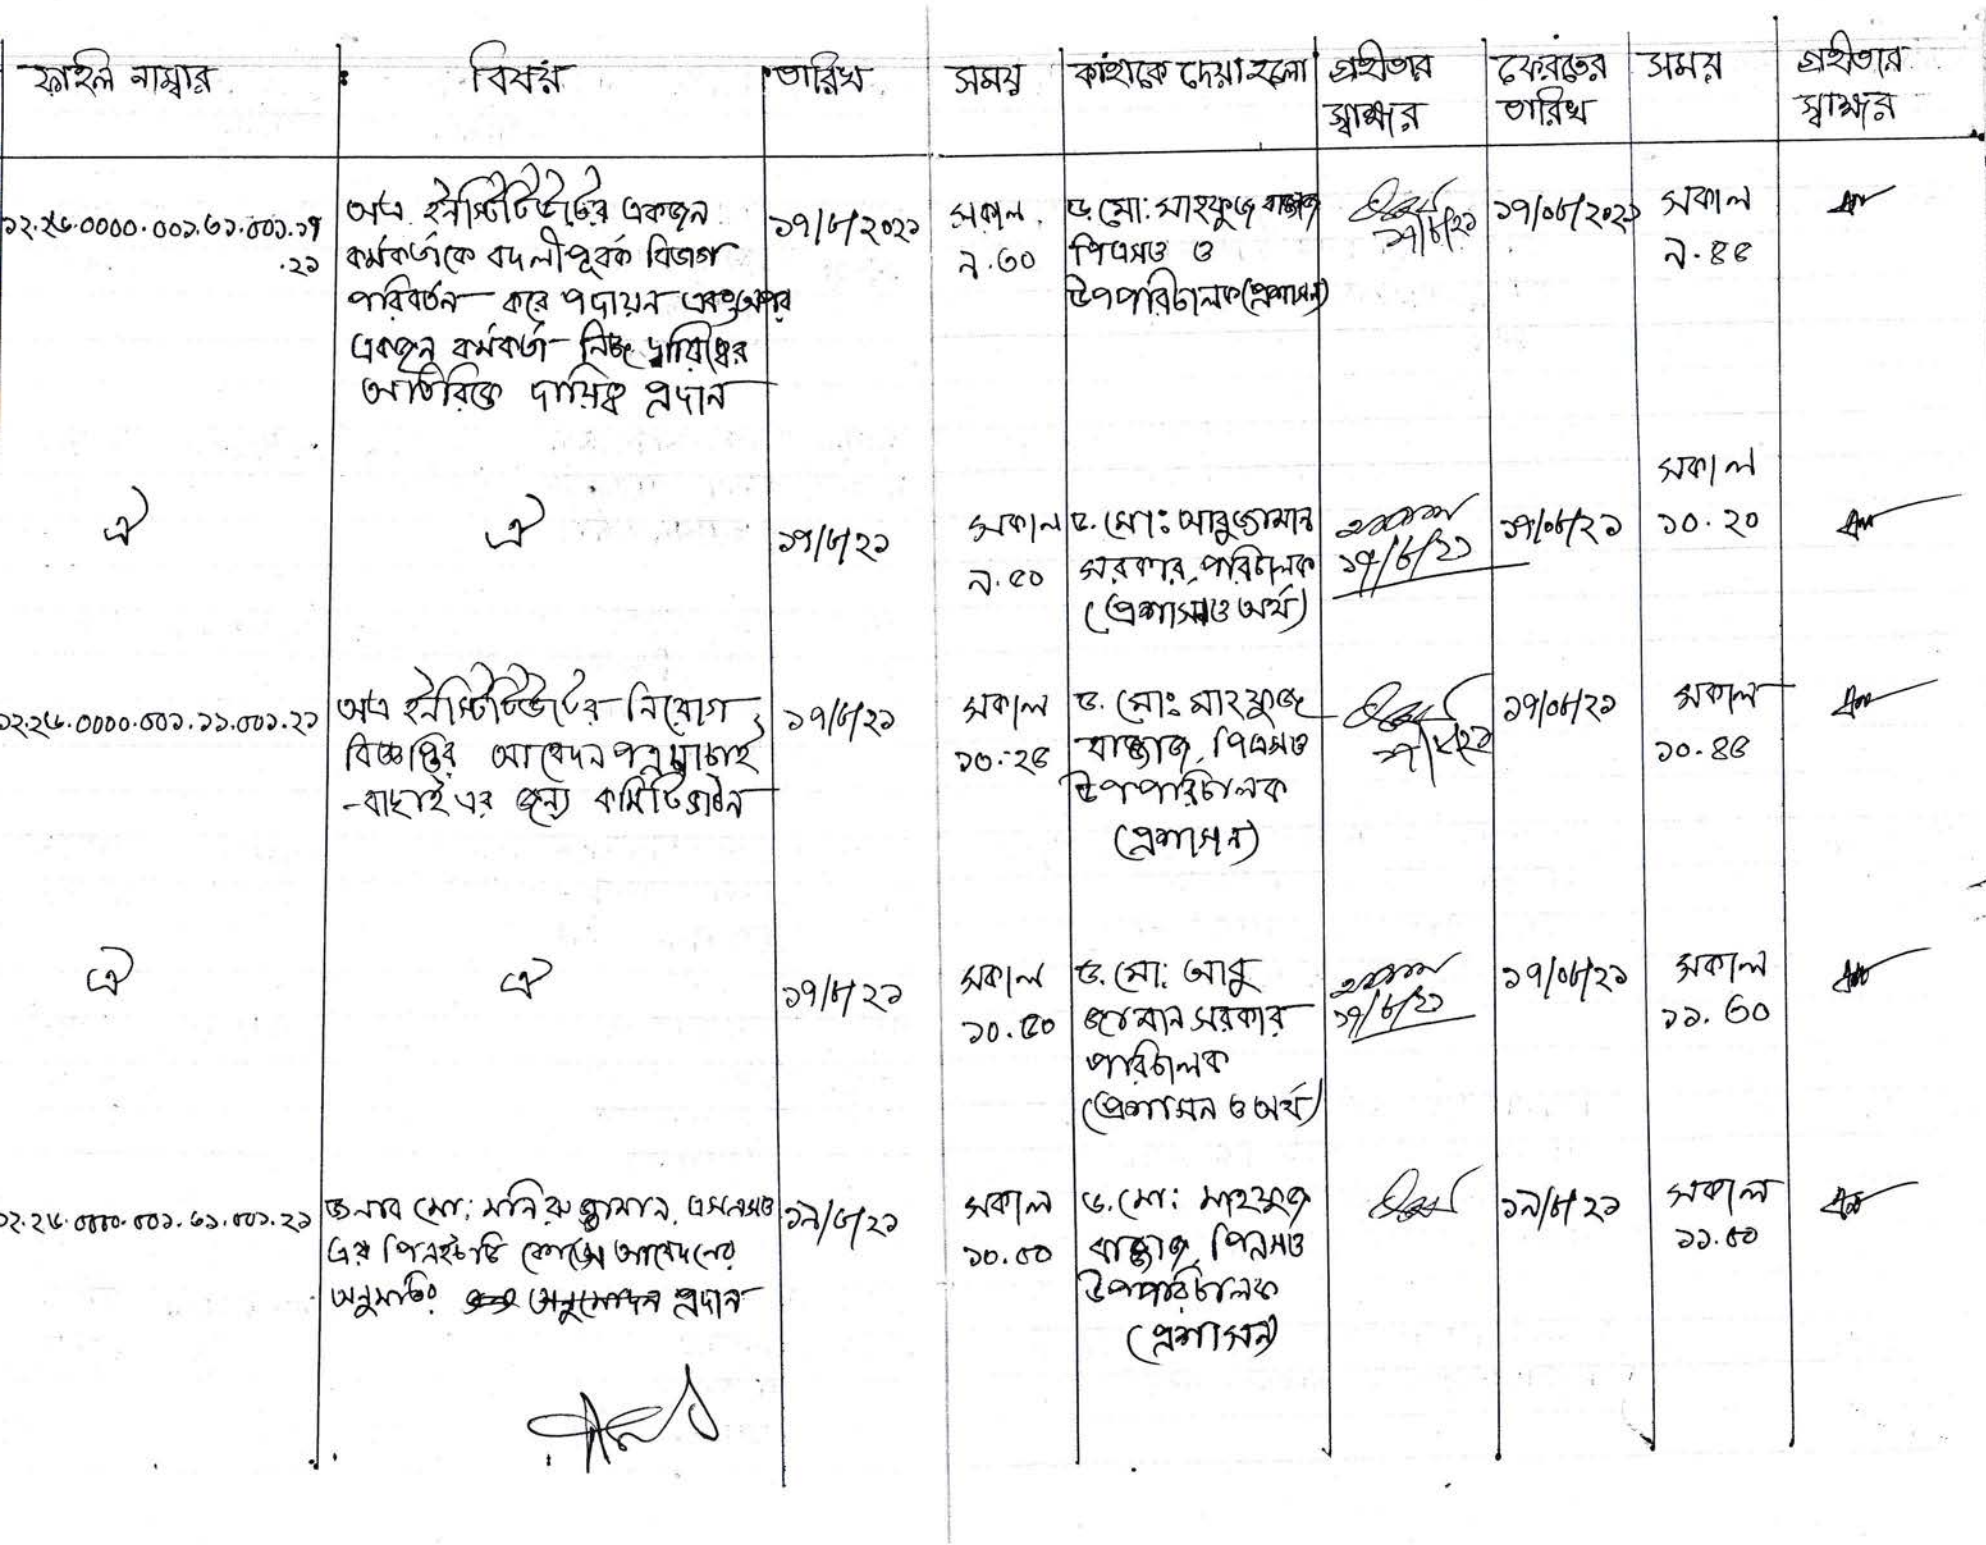 ফাইল নাম্বার
বিষয়
তারিখ
সময়
কাহাকে দেয়া হলো
গ্রহীতার
স্বাক্ষর
ফেরতের
তারিখ
সময়
গ্রহীতার
স্বাক্ষর
অত্র ইনস্টিটিউটের একজন
কর্মকর্তাকে বদলীপূর্বক বিভাগ
পরিবর্তন করে পদায়ন এবং অপর
একজন কর্মকর্তা নিজ দায়িত্বের
অতিরিক্ত দায়িত্ব প্রদান
১৭/৮/২০২১
সকাল
৯.৩০
ড. মো: মাহফুজ বাজ্জাজ
পিএসও ও
উপপরিচালক (প্রশাসন)
১৭/৮/২১
১৭/০৮/২০২১
সকাল
৯.৪৫
ঐ
ঐ
১৭/৮/২১
সকাল
৯.৫০
ড. মো: আবুজামান
সরকার, পরিচালক
(প্রশাসন ও অর্থ)
১৭/৮/২১
১৭/০৮/২১
সকাল
১০.২০
১২.২৬.০০০০.০০১.১১.০০১.২১
অত্র ইনস্টিটিউটের নিয়োগ
বিজ্ঞপ্তির আবেদন পত্র যাচাই
-বাছাই এর জন্য কমিটি গঠন
১৭/৮/২১
সকাল
১০.২৫
ড. মো: মাহফুজ
বাজ্জাজ, পিএসও
উপপরিচালক
(প্রশাসন)
১৭/৮/২১
১৭/০৮/২১
সকাল
১০.৪৫
ঐ
ঐ
১৭/৮/২১
সকাল
১০.৫০
ড. মো: আবু
জামান সরকার
পরিচালক
(প্রশাসন ও অর্থ)
১৭/৮/২১
১৭/০৮/২১
সকাল
১১.৩০
জনাব মো: মনিরুজ্জামান, এসএসও
এর পিএইচডি কোর্সে আবেদনের
অনুমতির অনুমোদন প্রদান
১৯/৮/২১
সকাল
১০.৪০
ড. মো: মাহফুজ
বাজ্জাজ, পিএসও
উপপরিচালক
(প্রশাসন)
১৯/৮/২১
সকাল
১১.৪০